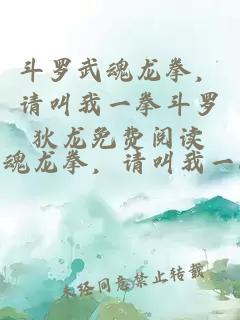 斗罗武魂龙拳，
请叫我一拳斗罗
狄龙免费阅读
魂龙拳，请叫我一
未经同意禁止转载